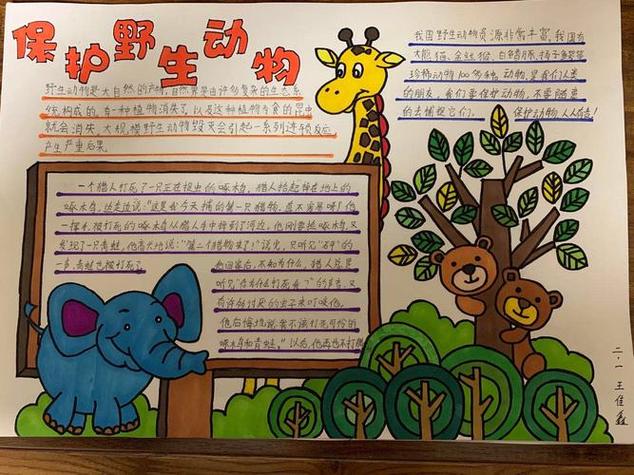 保护野生动物
野生动物是大自然的产物，自然界是由许多复杂的生态系
统构成的。有一种植物消失了，以这种植物为食的昆虫
就会消失。大规模野生动物毁灭会引起一系列连锁反应，
产生严重后果。
我国野生动物资源非常丰富，我国有
大熊猫、金丝猴、白鳍豚、扬子鳄等
珍稀动物100多种。动物是我们人类
的朋友，我们要保护动物，不要随意
的去捕捉它们。保护动物人人有责！
一个猎人打死了一只正在捉虫的啄木鸟，猎人拾起掉在地上的
啄木鸟，边走边说："这是我今天捕的第一只猎物，
一挥手，被打死的啄木鸟从猎人手中摔到了河边，他刚要捡啄木鸟，又
发现了一只青蛙，他高兴地说："第二个猎物来了！"说完，只听见"砰"的
一声，青蛙也被打死了
他回家后，不知为什么，猎人总是
听见"你为什么打死我？"的声音，又
有许多讨厌的虫子来叮咬他，
他后悔地说："我不该打死可怜的
啄木鸟和青蛙。"以后，他再也不打猎
二.1 王佳鑫